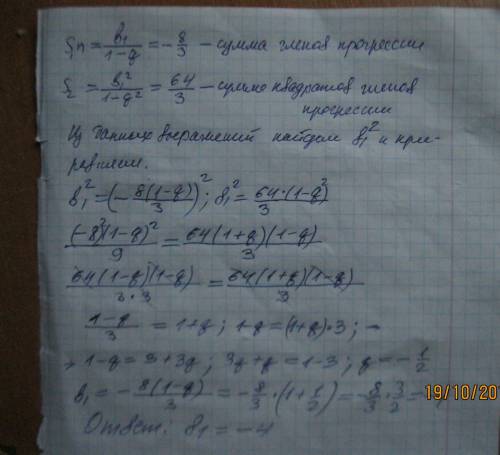 Sn = b₁/(1-q) = -8/3 – сумма членов прогрессии
S₂ = b₁²/(1-q²) = 64/3 – сумма квадратов членов
прогрессии
Из данных выражений найдем b₁² и при-
равняем.
b₁² = (-8(1-q)/3)²; b₁² = 64·(1-q²)/3
(-8)²(1-q)²/9 = 64(1+q)(1-q)/3
64(1-q)(1-q)/3·3 = 64(1+q)(1-q)/3
(1-q)/3 = 1+q; 1-q = (1+q)·3; →
→ 1-q = 3+3q; 3q+q = 1-3; q = -1/2
b₁ = -8(1-q)/3 = -8/3·(1+1/2) = -8/3·3/2 = -
19/10/20
Ответ: b₁ = -4